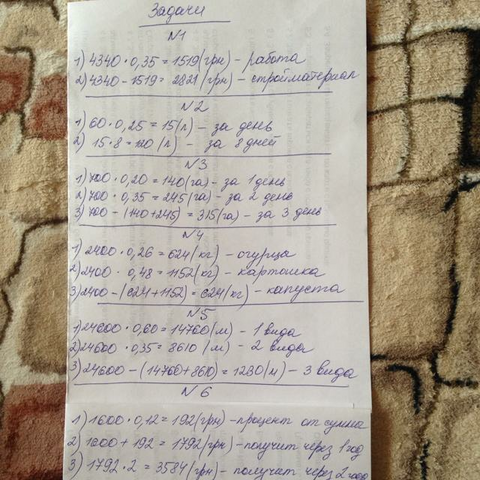 Задачи
N1
1) 4340 · 0,35 = 1519 (грн) - работа
2) 4340 - 1519 = 2821 (грн) - стройматериал
N2
1) 60 · 0,25 = 15 (л) - за день
2) 15 · 8 = 120 (л) - за 8 дней
N3
1) 700 · 0,20 = 140 (га) - за 1 день
2) 700 · 0,35 = 245 (га) - за 2 день
3) 700 - (140+245) = 315 (га) - за 3 день
N4
1) 2400 · 0,26 = 624 (кг) - огурца
2) 2400 · 0,48 = 1152 (кг) - картошка
3) 2400 - (624+1152) = 624 (кг) - капуста
N5
1) 24600 · 0,60 = 14760 (м) - 1 вида
2) 24600 · 0,35 = 8610 (м) - 2 вида
3) 24600 - (14760+8610) = 1230 (м) - 3 вида
N6
1) 1600 · 0,12 = 192 (грн) - процент от суммы
2) 1600 + 192 = 1792 (грн) - получит через 1 год
3) 1792 · 2 = 3584 (грн) - получит через 2 года